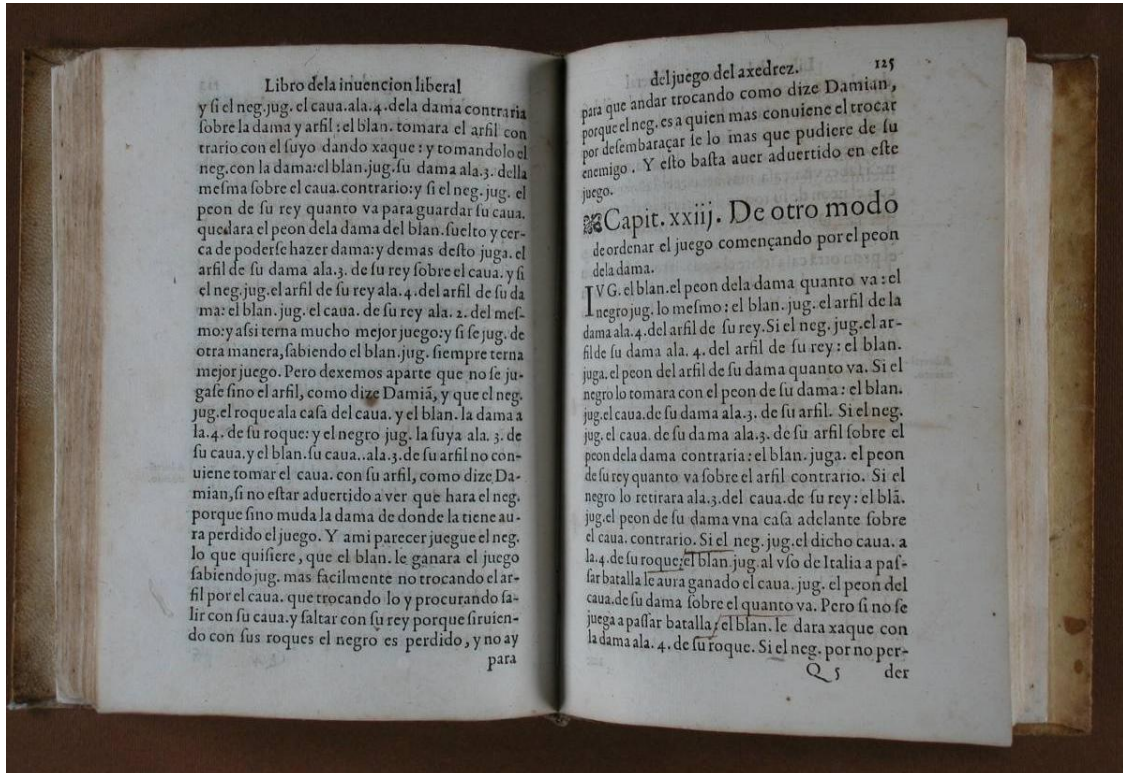 Libro dela inuencion liberal
y ſi el neg. jug. el caua. ala. 4. dela dama contraria
ſobre la dama y arfil : el blan. tomara el arfil con
trario con el ſuyo dando xaque : y tomandolo el
neg. con la dama: el blan. jug. ſu dama ala. 3. della
meſma ſobre el caua. contrario: y ſi el neg. jug. el
peon de ſu rey quanto va para guardar ſu caua.
quedara el peon dela dama del blan. ſuelto y cer-
ca de poderſe hazer dama: y demas deſto juga. el
arfil de ſu dama ala. 3. de ſu rey ſobre el caua. y ſi
el neg. jug. el arfil de ſu rey ala. 4. del arfil de ſu da
ma: el blan. jug. el caua. de ſu rey ala. 2. del meſ-
mo: y aſsi terna mucho mejor juego: y ſi ſe jug. de
otra manera, ſabiendo el blan. jug. ſiempre terna
mejor juego. Pero dexemos aparte que no ſe ju-
gaſe ſino el arfil, como dize Damiã, y que el neg.
jug. el roque ala caſa del caua. y el blan. la dama a
la. 4. de ſu roque: y el negro jug. la ſuya ala. 3. de
ſu caua. y el blan. ſu caua. . ala. 3. de ſu arfil no con-
uiene tomar el caua. con ſu arfil, como dize Da-
mian, ſi no eſtar aduertido a ver que hara el neg.
porque ſino muda la dama de donde la tiene au-
ra perdido el juego. Y ami parecer juegue el neg.
lo que quiſiere, que el blan. le ganara el juego
ſabiendo jug. mas facilmente no trocando el ar-
fil por el caua. que trocando lo y procurando ſa-
lir con ſu caua. y ſaltar con ſu rey porque ſiruien-
do con ſus roques el negro es perdido, y no ay
para
del juego del axedrez. 125
para que andar trocando como dize Damian,
porque el neg. es a quien mas conuiene el trocar
por deſembaraçar ſe lo mas que pudiere de ſu
enemigo. Y eſto baſta auer aduertido en eſte
juego.
Capit. xxiij. De otro modo
de ordenar el juego començando por el peon
dela dama.
IVG. el blan. el peon dela dama quanto va : el
negro jug. lo meſmo : el blan. jug. el arfil de la
dama ala. 4. del arfil de ſu rey. Si el neg. jug. el ar-
fil de ſu dama ala. 4. del arfil de ſu rey : el blan.
juga. el peon del arfil de ſu dama quanto va. Si el
negro lo tomara con el peon de ſu dama : el blan.
jug. el caua. de ſu dama ala. 3. de ſu arfil. Si el neg.
jug. el caua. de ſu dama ala. 3. de ſu arfil ſobre el
peon dela dama contraria : el blan. juga. el peon
de ſu rey quanto va ſobre el arfil contrario. Si el
negro lo retirara ala. 3. del caua. de ſu rey : el blã.
jug. el peon de ſu dama vna caſa adelante ſobre
el caua. contrario. Si el neg. jug. el dicho caua. a
la. 4. de ſu roque: el blan. jug. al vſo de Italia a paſ-
ſar batalla le aura ganado el caua. jug. el peon del
caua. de ſu dama ſobre el quanto va. Pero ſi no ſe
juega a paſſar batalla: el blan. le dara xaque con
la dama ala. 4. de ſu roque. Si el neg. por no per-
Q 5 der